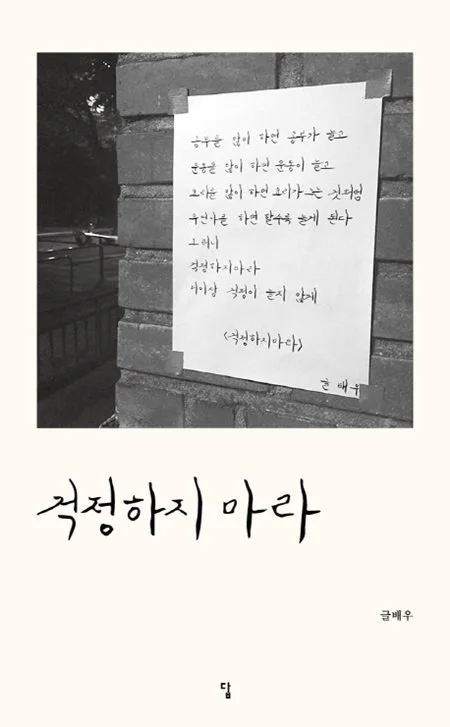 공부를 많이 하면 공부가 늘고
운동을 많이 하면 운동이 늘고
요리를 많이 하면 요리가 느는 것처럼
무언가를 하면 할수록 늘게 된다
그러니
걱정하지마라
더이상 걱정이 늘지 않게
<걱정하지마라>
글 배우
걱정하지 마라
글배우
답